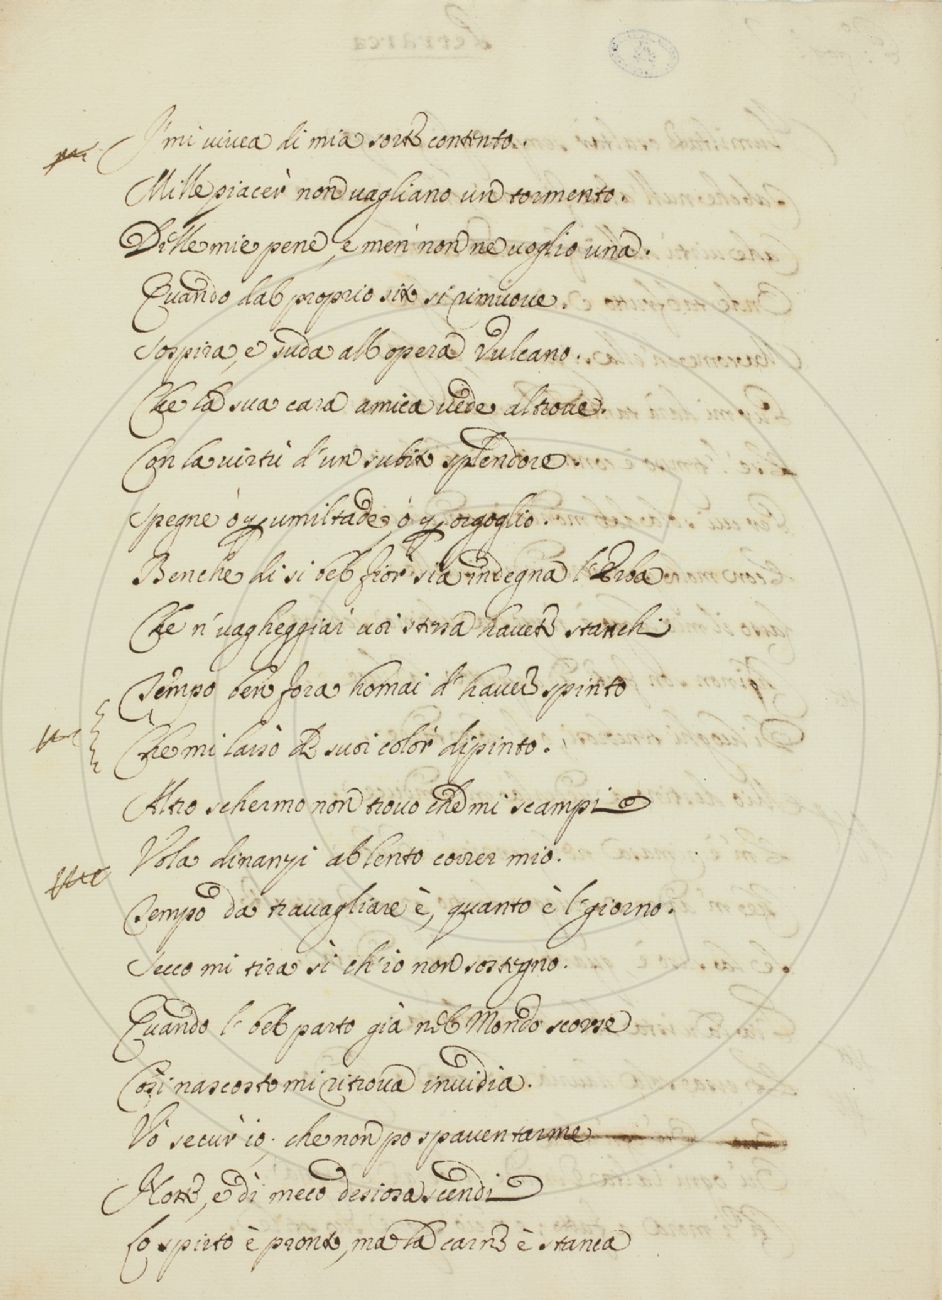 I' mi vivea di mia sorte contento.
Mille piacer' non vagliano un tormento.
Di lle mie pene, e men' non ne voglio una.
Quando dal proprio sito si rimuove
Sospira, e suda all opera Vulcano.
Che la sua cara amica vede altrove.
Con la virtù d'un subito splendore
Spegne ò p umiltade, ò p orgoglio.
Benche di si bel fior sia indegna l'Erba
Che n' vagheggiar voi stessa havete stanchi
Tempo ben fora homai d' haver spinto
Che mi lasciò de suoi color' dipinto.
Altro schermo non trovo che mi scampi
Vola dinanzi al lento correr mio.
Tempo da travagliare è, quanto è l' giorno.
Secco mi tira sì ch'io non sostegno.
Quando l' bel parto già nel Mondo scorse
Così nascosto mi ritrova invidia.
Vò securo io. che non po spaventarme
Notte, e dì meco desiora scendi
Lo spirto è pronto, ma la carne è stanca